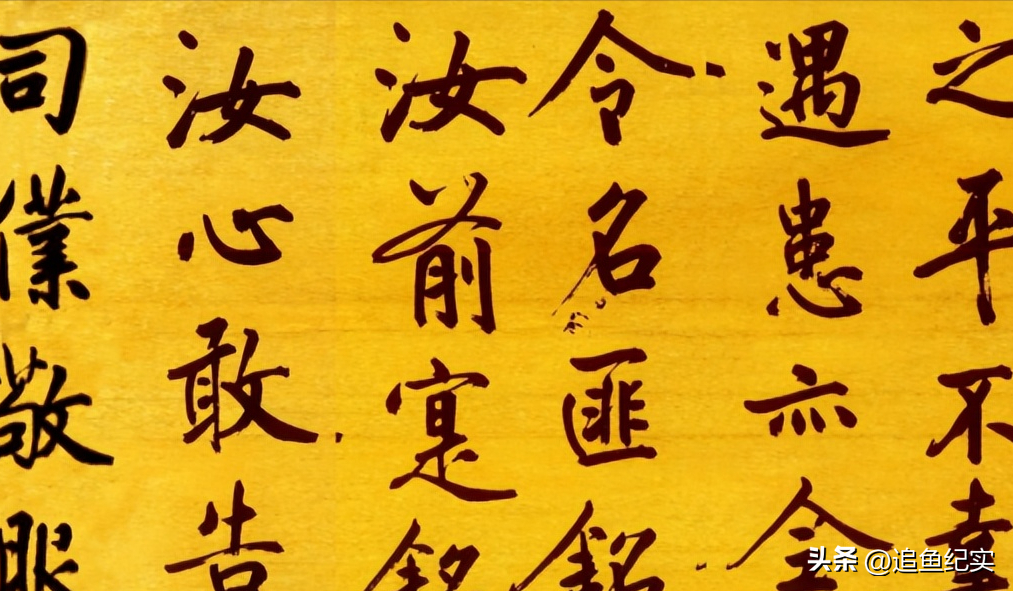 之平不幸
遇患亦全
令名匪銘
汝前寔銘
汝心敢告
司僕敬
头条 @追鱼纪实